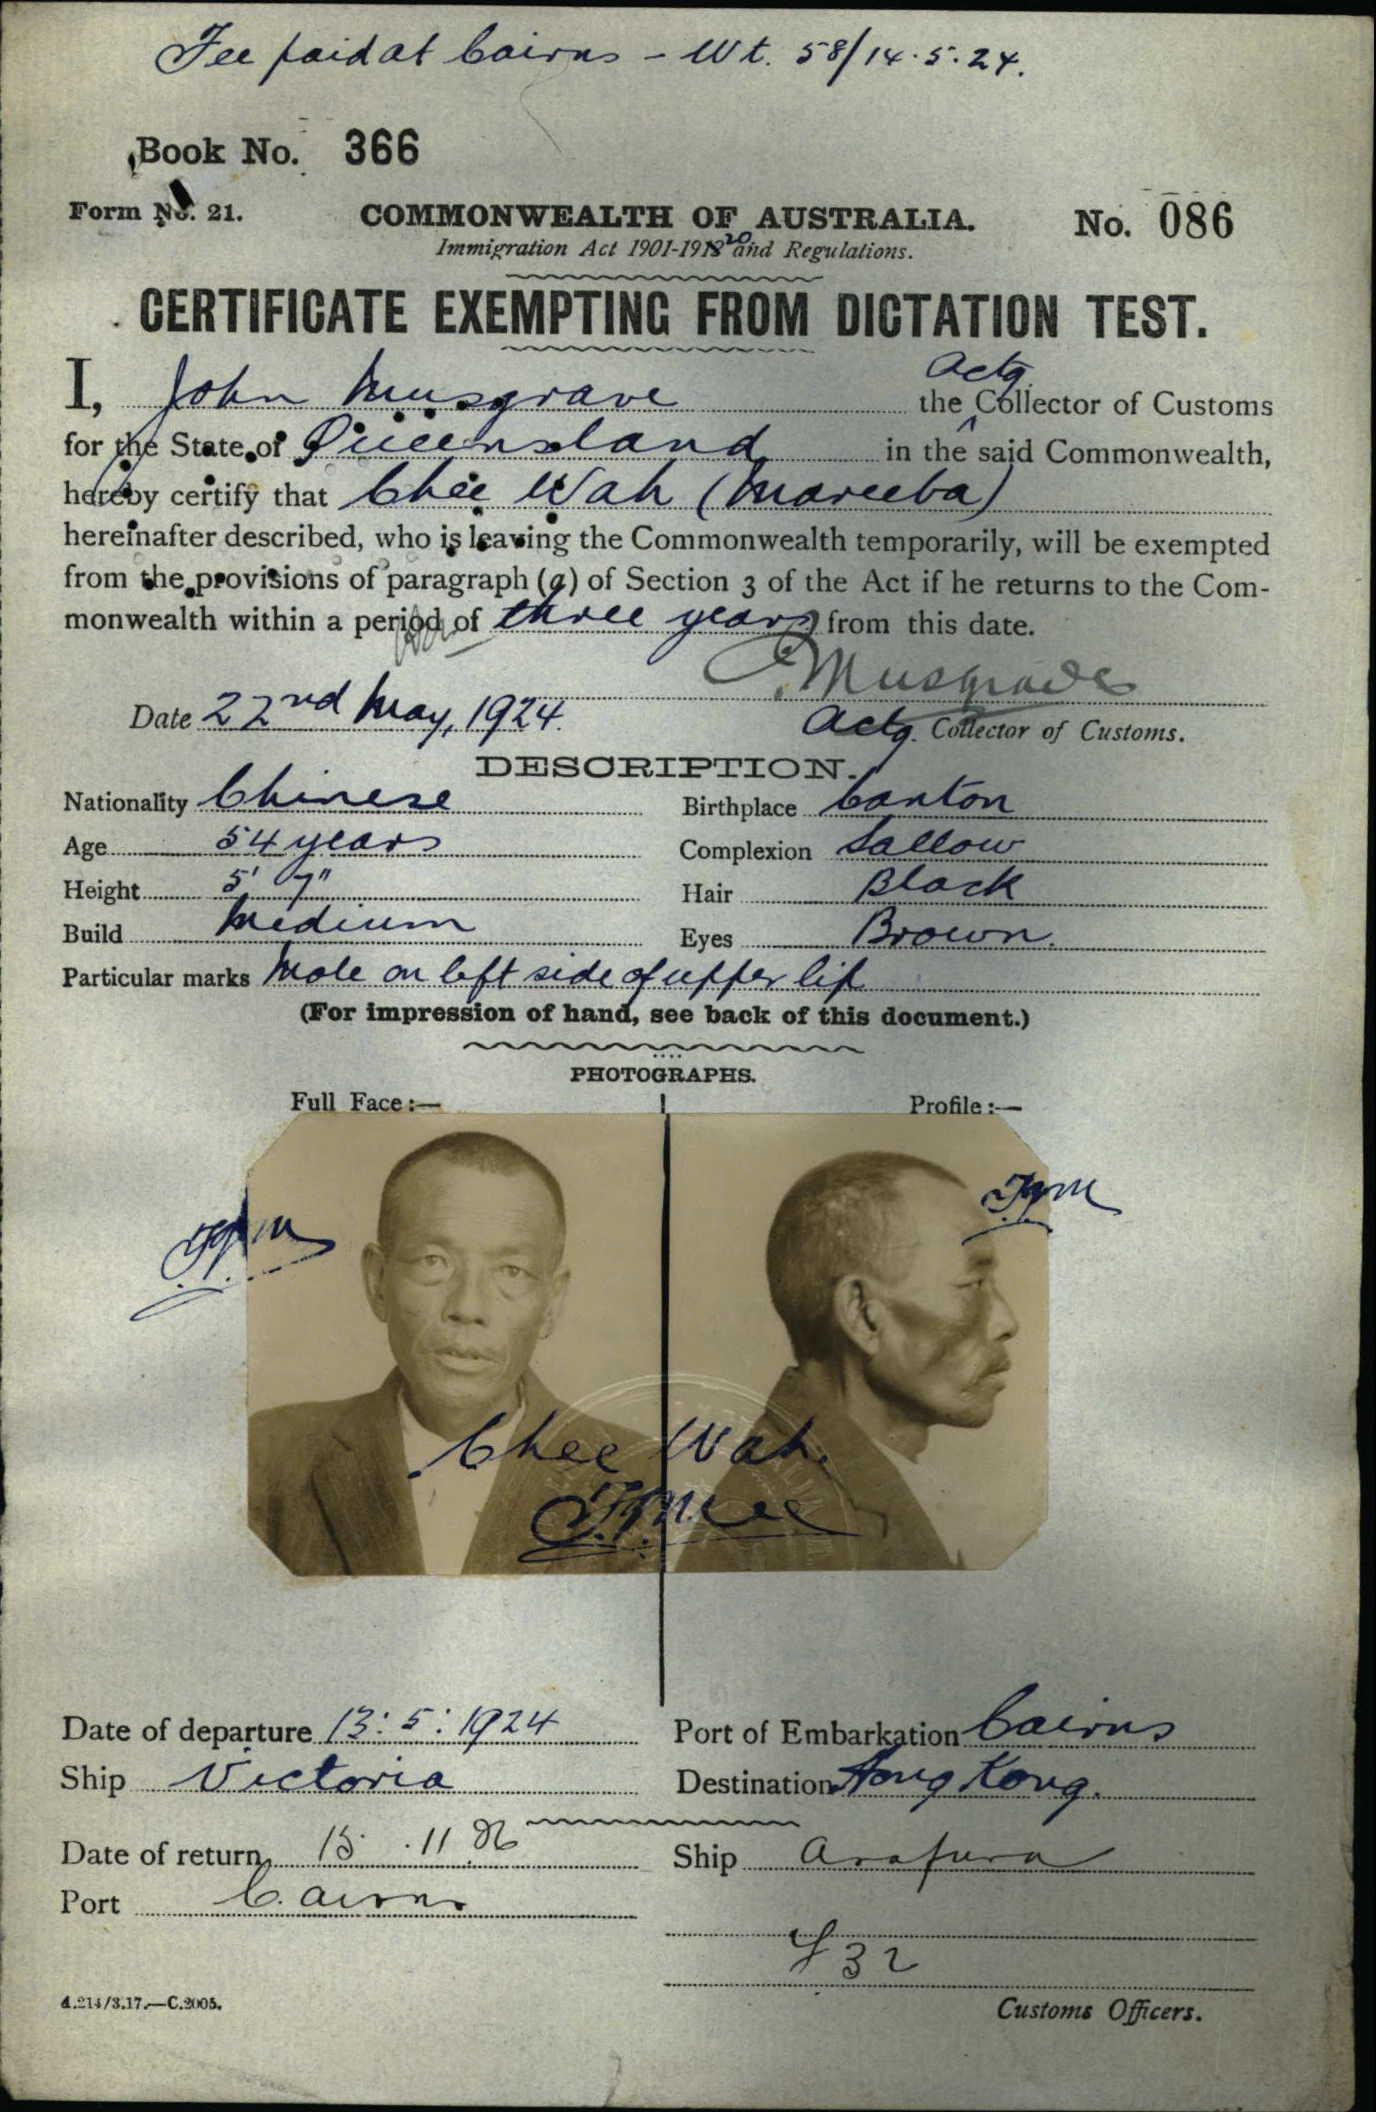 Fee paid at Cairns - Wt. 58/14.5.24.
Book No. 366
Form No. 21. COMMONWEALTH OF AUSTRALIA. No. 086
Immigration Act 1901-1918 20 and Regulations.
CERTIFICATE EXEMPTING FROM DICTATION TEST.
Actg.
I, John Musgrave the Collector of Customs
for the State of Queensland in the said Commonwealth,
hereby certify that Chee Wah (Mareeba)
hereinafter described, who is leaving the Commonwealth temporarily, will be exempted
from the provisions of paragraph (a) of Section 3 of the Act if he returns to the Com-
monwealth within a period of three years from this date.
J Musgrave
Date 22nd May, 1924. Actg. Collector of Customs.
DESCRIPTION.
Nationality Chinese Birthplace Canton
Age 54 years Complexion Sallow
Height 5' 7" Hair Black
Build Medium Eyes Brown.
Particular marks Mole on left side of upper lip
(For impression of hand, see back of this document.)
PHOTOGRAPHS.
Full Face:— Profile:—
Chee Wah.
Date of departure 13:5:1924 Port of Embarkation Cairns
Ship Victoria Destination Hong Kong.
Date of return 15.11.26 Ship Arafura
Port Cairns
£32
A.214/3.17.—C.2005. Customs Officers.